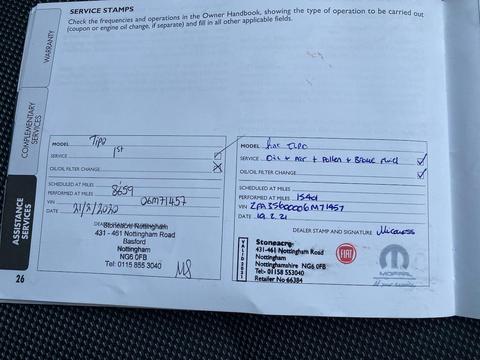 SERVICE STAMPS
Check the frequencies and operations in the Owner Handbook, showing the type of operation to be carried out
(coupon or engine oil change, if separate) and fill in all other applicable fields.
WARRANTY
COMPLEMENTARY
SERVICES
ASSISTANCE
SERVICES
MODEL Tipo
SERVICE 1st
OIL/OIL FILTER CHANGE
SCHEDULED AT MILES
PERFORMED AT MILES 8659
VIN 06M71457
DATE 21/2/2020
Stoneacre Nottingham
431 - 461 Nottingham Road
Basford
Nottingham
NG6 0FB
Tel: 0115 855 3040
MODEL Fiat TIPO
SERVICE Oil + Air + Pollen + Brake Fluid
OIL/OIL FILTER CHANGE
SCHEDULED AT MILES
PERFORMED AT MILES 15401
VIN ZFA35600006M71457
DATE 19.2.21
DEALER STAMP AND SIGNATURE
VALID 2021
Stoneacre
431-461 Nottingham Road
Nottingham
Nottinghamshire NG6 0FB
Tel:- 01158 553040
Retailer No 66384
FIAT
MOPAR
26